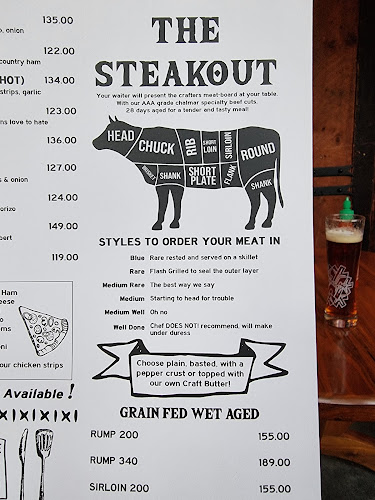 135.00
, onion
122.00
country ham
HOT) 134.00
strips, garlic
123.00
ns love to hate
136.00
127.00
s & onion
124.00
orizo
149.00
bert
119.00
Ham
eese
o
rns
ni
our chicken strips
Available !
THE
STEAKOUT
Your waiter will present the crafters meat-board at your table.
With our AAA grade chalmar specialty beef cuts.
28 days aged for a tender and tasty meal!
HEAD
CHUCK
RIB
SHORT
LOIN
SIRLOIN
ROUND
BRISKET
SHANK
SHORT
PLATE
FLANK
SHANK
STYLES TO ORDER YOUR MEAT IN
Blue Rare rested and served on a skillet
Rare Flash Grilled to seal the outer layer
Medium Rare The best way we say
Medium Starting to head for trouble
Medium Well Oh no
Well Done Chef DOES NOT! recommend, will make
under duress
Choose plain, basted, with a
pepper crust or topped with
our own Craft Butter!
GRAIN FED WET AGED
RUMP 200 155.00
RUMP 340 189.00
SIRLOIN 200 155.00